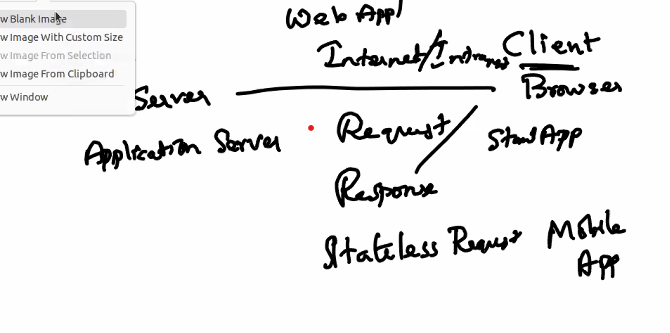 w Blank Image
w Image With Custom Size
w Image From Selection
w Image From Clipboard
w Window
Web Appl
Internet/Intranet
Client
Browser
Server
Application Server
Request
Response
Stateless Request
App
Mobile
App